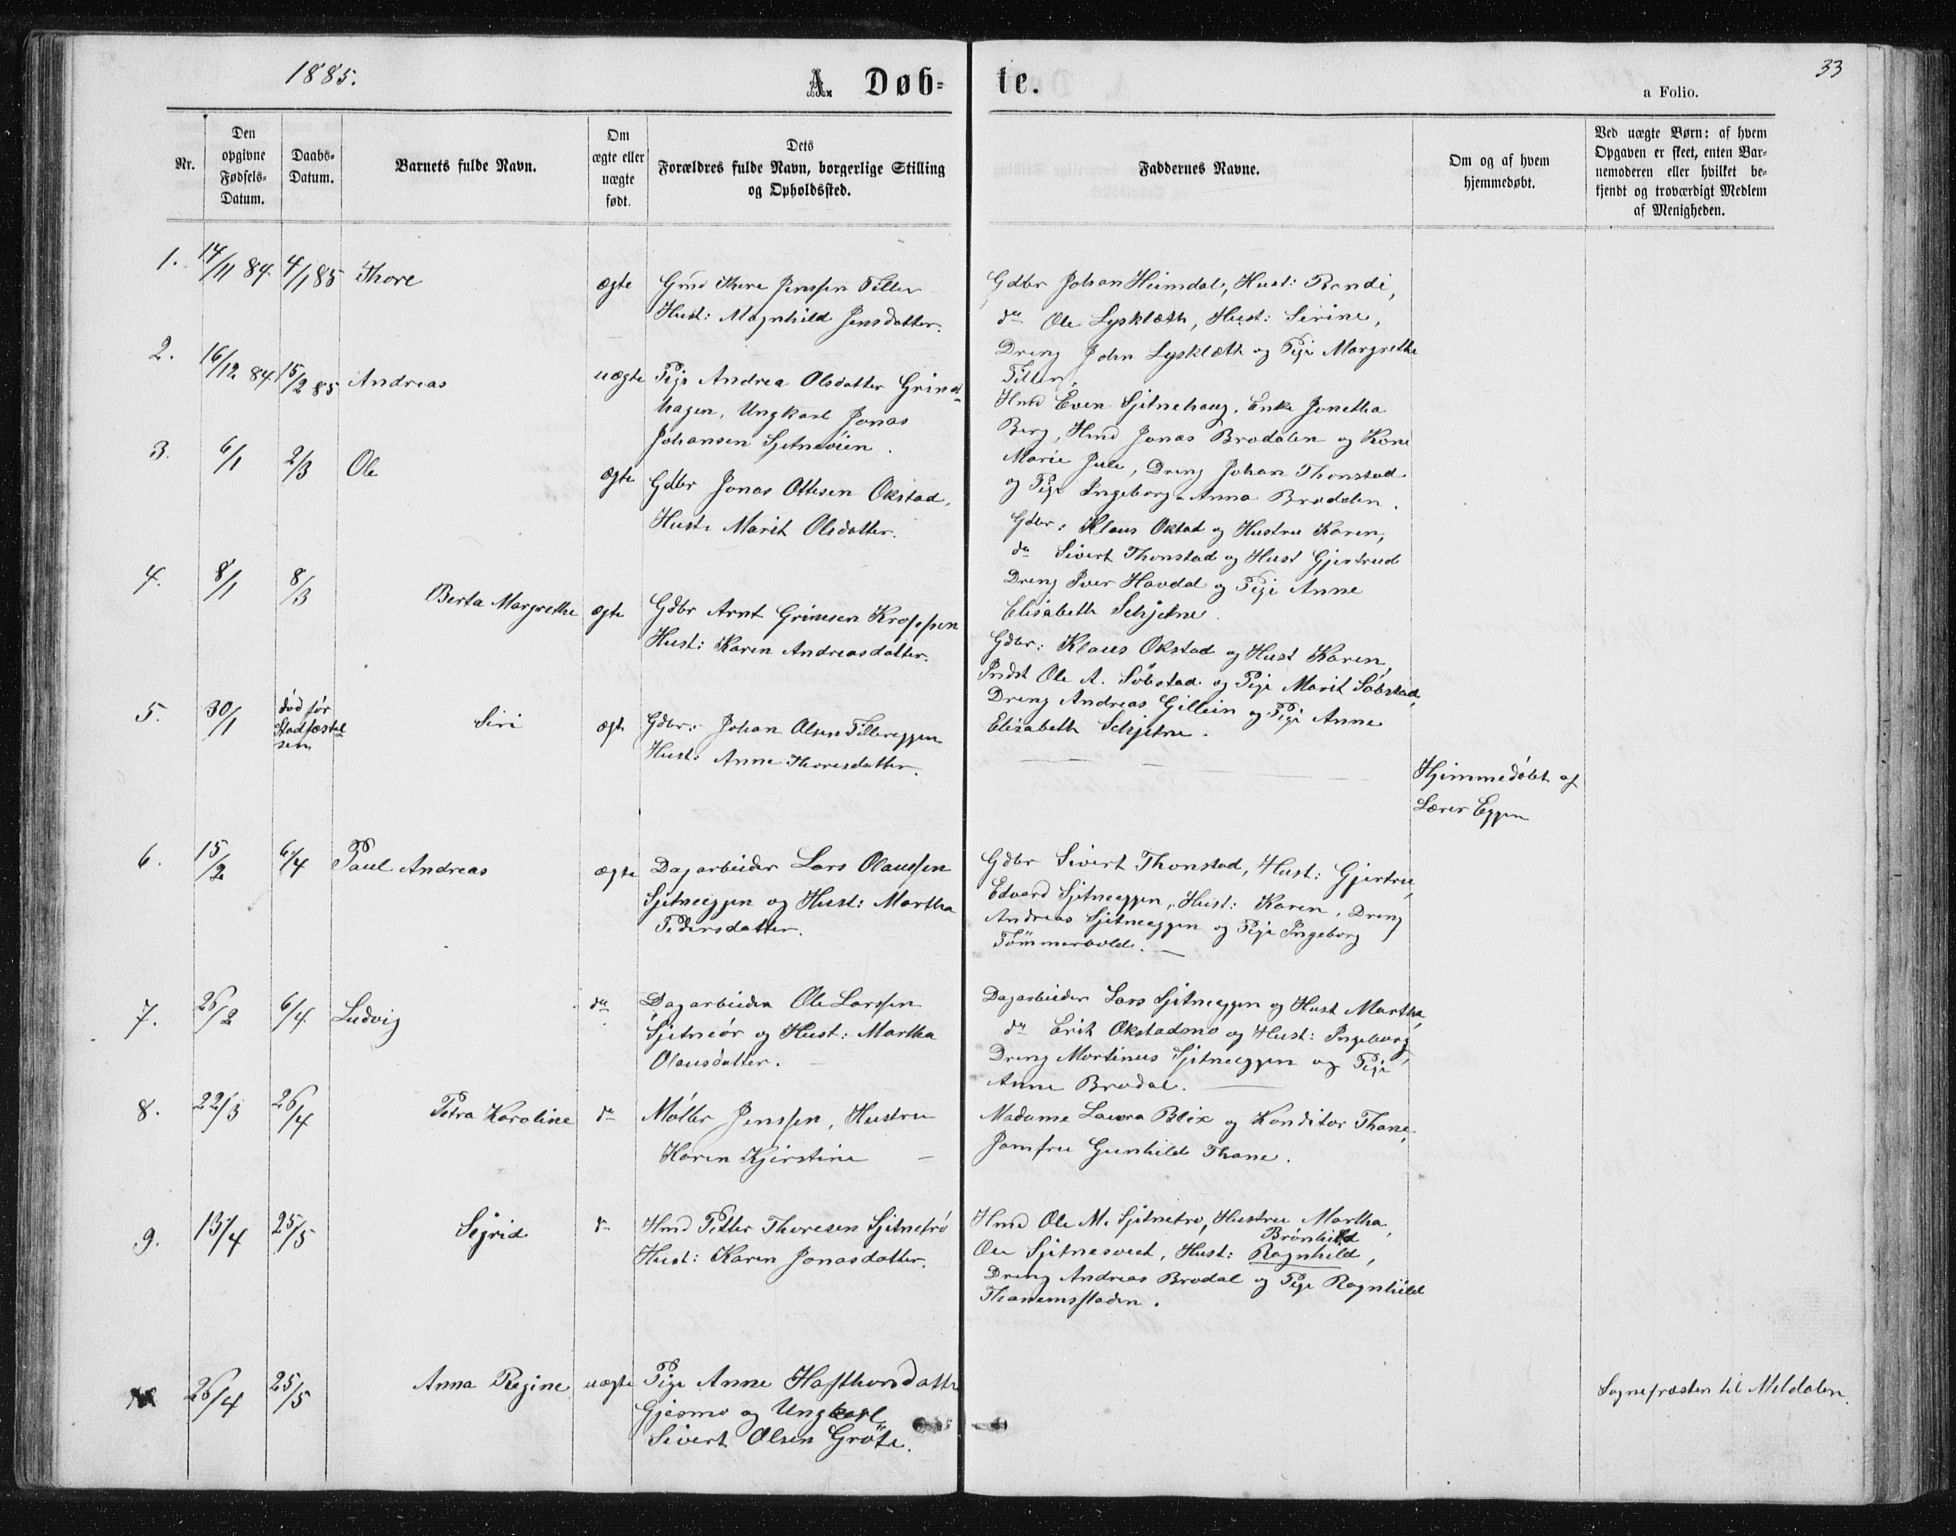 1885.
A. Døb-
te.
33
a Folio.
Nr.
Den
opgivne
Fødsels-
Datum.
Daabs-
Datum.
Barnets fulde Navn.
Om
ægte eller
uægte
født.
Dets
Forældres fulde Navn, borgerlige Stilling
og Opholdssted.
Faddernes Navne.
Om og af hvem
hjemmedøbt.
Ved uægte Børn: af hvem
Opgaven er skeet, enten Bar-
nemoderen eller hvilket be-
kjendt og troværdigt Medlem
af Menigheden.
1. 14/11 84. 4/1 85 Thore ægte
Gmd Thore Jenssen Tiller
Hust: Magnhild Jensdatter.
Gdbr Johan Heimdal, Hust: Randi,
do Ole Lysklæth, Hust: Sirine,
Dreng John Lysklæth og Pige Margrethe
Tiller.
2. 16/12 84 15/2 85 Andreas uægte
Pige Andrea Olsdatter Grind-
hagen, Ungkarl Jonas
Johansen Sjetnevien.
Hmd Even Sjetnehaug, Enke Jonetha
Berg, Hmd Jonas Brodalen og Kone
Marie Jule, Dreng Johan Thonstad
og Pige Ingeborg Anna Brodalen.
3. 6/1 2/3 Ole ægte
Gdbr Jonas Ottesen Okstad,
Hust: Marit Olsdatter.
Gdbr: Klaus Okstad og Hustru Karen,
do Sivert Thonstad og Hust Gjertrud
Dreng Iver Havdal og Pige Anne
Elisabeth Schjetne.
4. 8/1 8/3 Berta Margrethe ægte
Gdbr Arnt Grimsen Kroppen
Hust: Karen Andreasdatter.
Gdbr: Klaus Okstad og Hust Karen,
Indst Ole A. Søbstad og Pige Marit Søbstad,
Dreng Andreas Gillein og Pige Anne
Elisabeth Schjetne.
5. 30/1 død før
Stadfæstel
sen
Siri ægte
Gdbr: Johan Olsen Tillereggen
Hust: Anne Thoresdatter.
Hjemmedøbt af
Lærer Eggen
6. 15/2 6/4 Paul Andreas ægte
Dagarbeider Lars Olaussen
Sjetneeggen og Hust: Martha
Pedersdatter.
Gdbr Sivert Thonstad, Hust: Gjertru,
Edvard Sjetneeggen, Hust: Karen, Dreng
Andreas Sjetneeggen og Pige Ingeborg
Tømmervold.
7. 26/2 6/4 Ludvig do
Dagarbeider Ole Larssen
Sjetneør og Hust: Martha
Olausdatter.
Dagarbeider Lars Sjetneeggen og Hust Martha,
do Erik Okstadmo og Hust: Ingeborg,
Dreng Martinus Sjetneeggen og Pige
Anne Brodal.
8. 22/3 26/4 Petra Karoline do
Møller Jenssen, Hustru
Karen Kjerstine
Madame Laura Blix og Konditor Thane,
Jomfru Gunhild Thane.
9. 13/4 25/5 Sigrid do
Hmd Petter Thoresen Sjetnetrø
Hust: Karen Jonasdatter.
Hmd Ole M. Sjetnetrø, Hustru Martha,
Brønhild
Ole Sjetnesveet, Hust: Ragnhild,
Dreng Andreas Brodal og Pige Ragnhild
Thanemsstaden.
26/4 25/5 Anna Regine uægte
Pige Anne Hafthorsdatter
Gjesmo og Ungkarl
Sivert Olsen Grøte.
Sognepræsten til Meldalen.